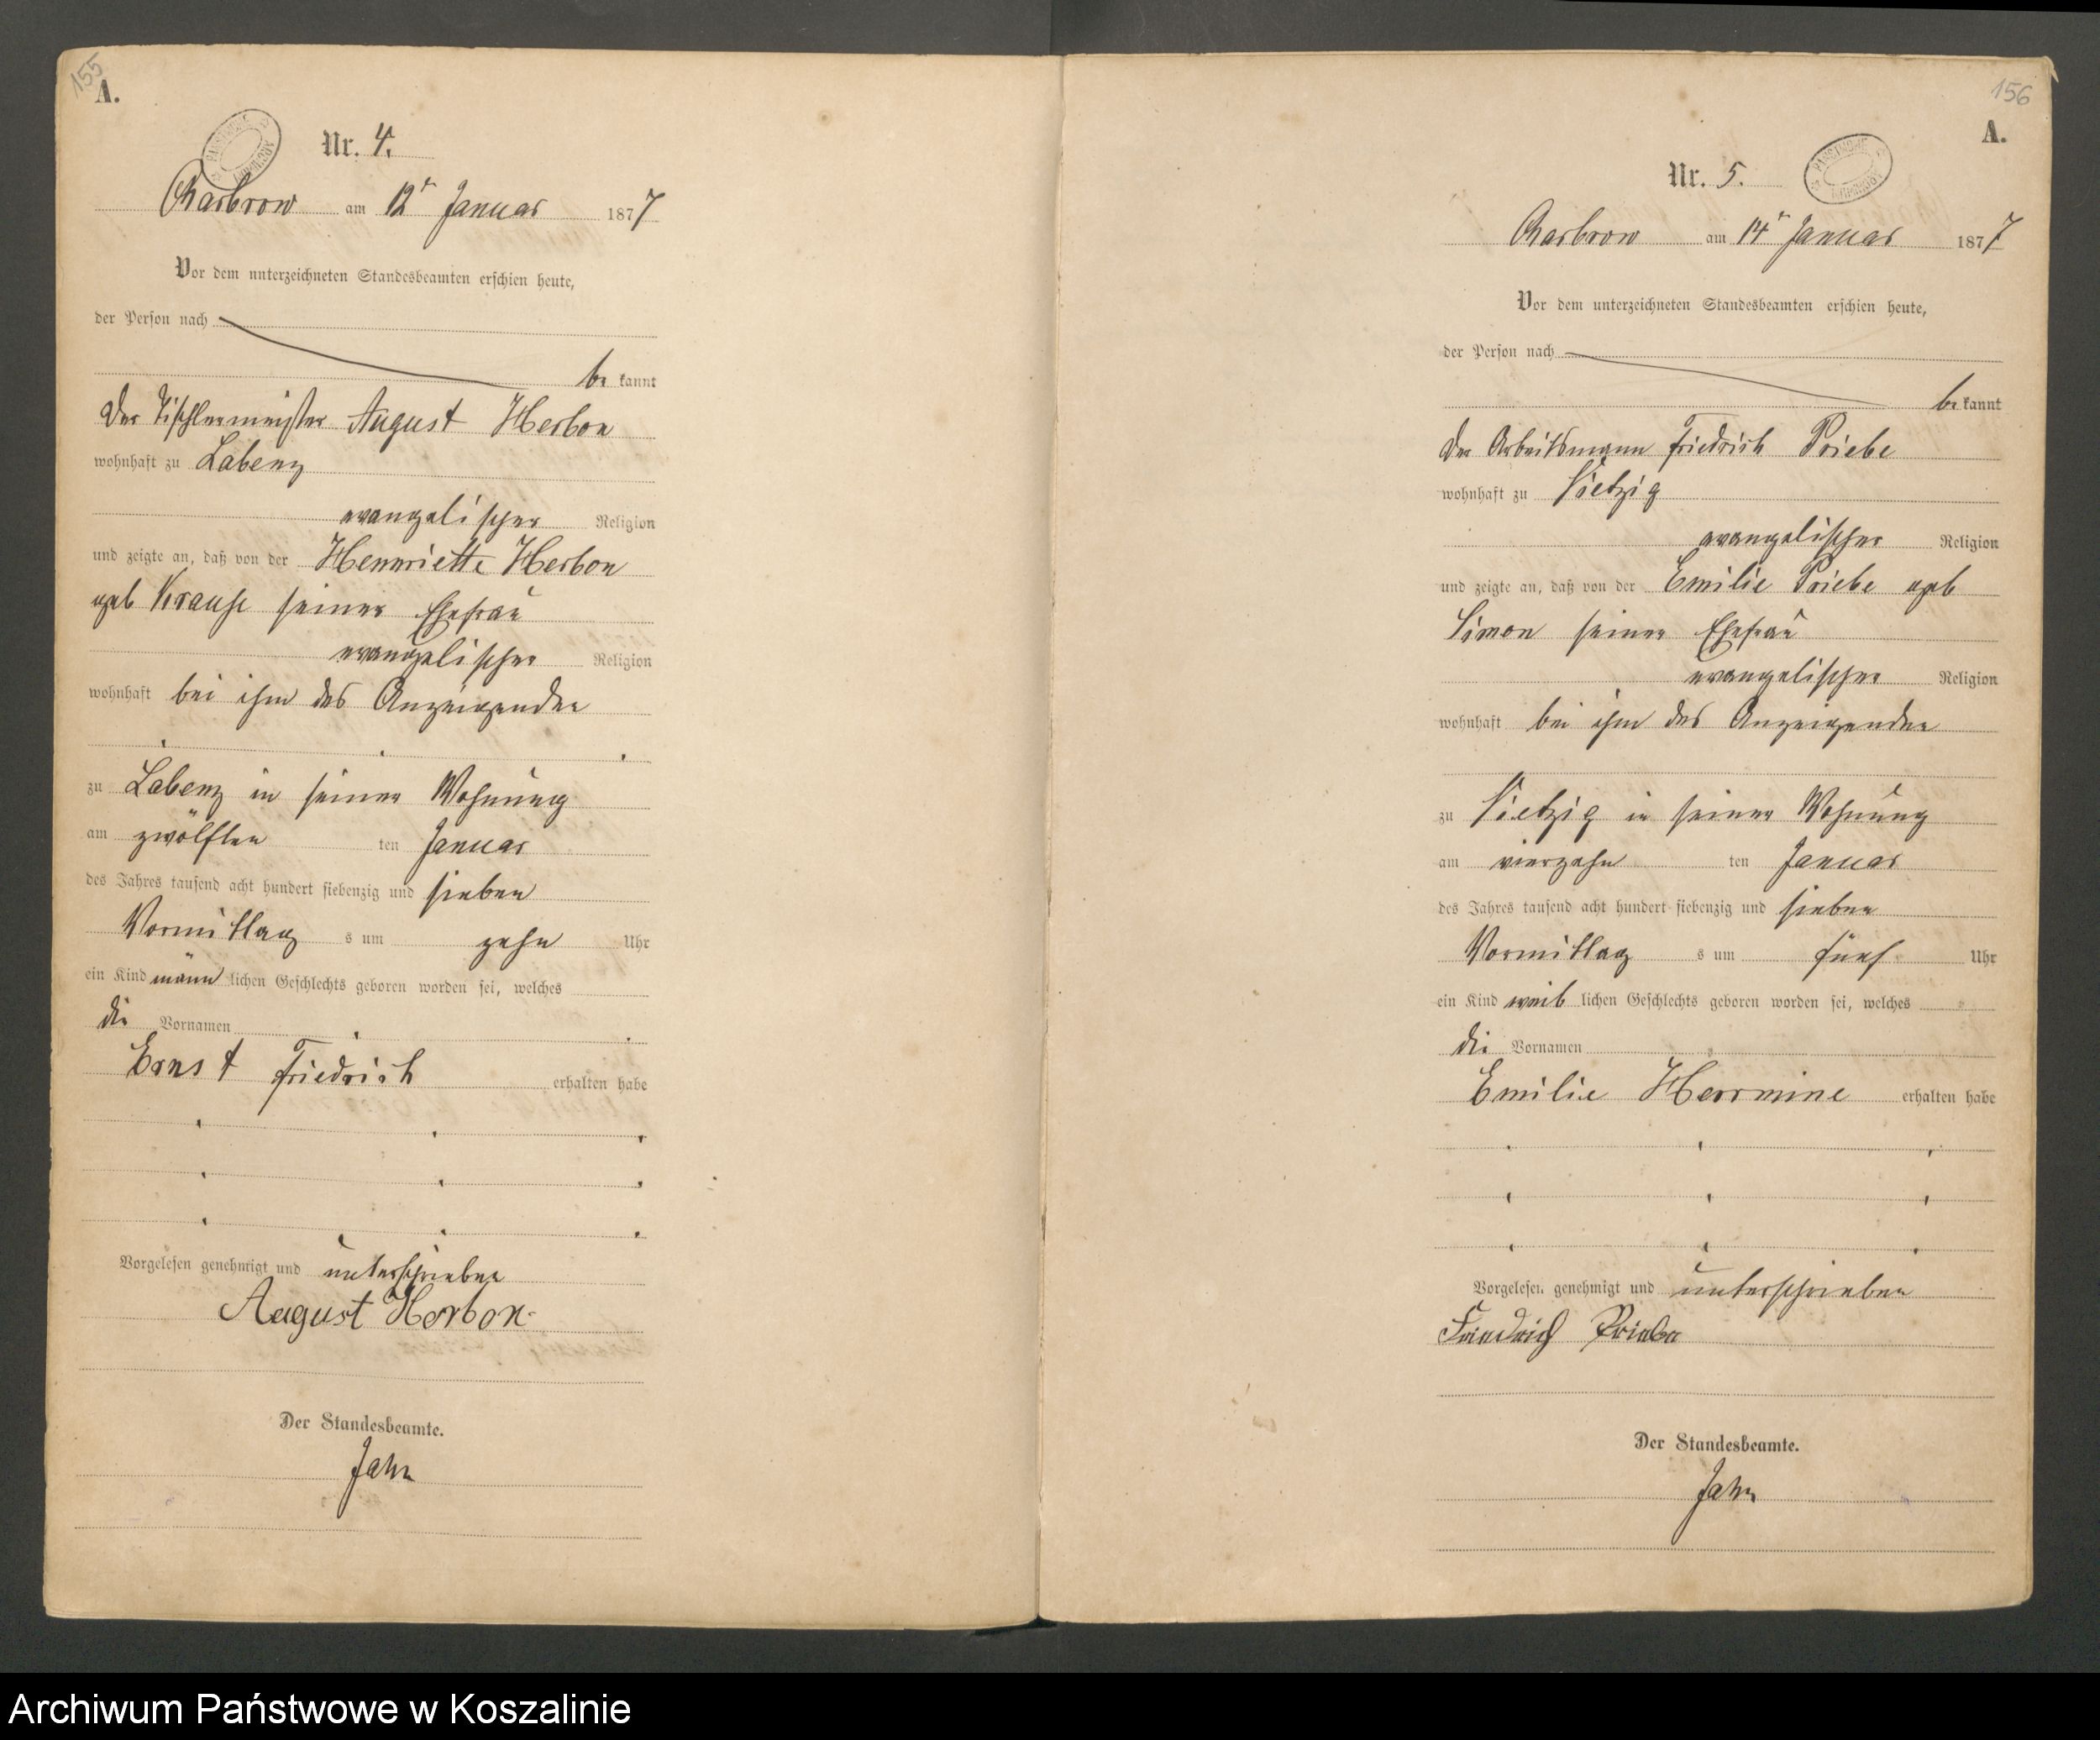 155
A.
Nr. 4.
Charbrow am 12ͭ Januar 1877
Vor dem unterzeichneten Standesbeamten erschien heute,
der Person nach
be kannt
Der Tischlermeister August Herbon
wohnhaft zu Labenz
evangelischer Religion
und zeigte an, daß von der Hennriette Herbon
geb Krause seiner Ehefrau
evangelischer Religion
wohnhaft bei ihm des Anzeigenden
zu Labenz in seiner Wohnung
am zwölften ten Januar
des Jahres tausend acht hundert siebenzig und sieben
Vormittag s um zehn Uhr
ein Kind männ lichen Geschlechts geboren worden sei, welches
die Vornamen
Ernst Friedrich erhalten habe
Vorgelesen genehmigt und unterschrieben
August Herbon
Der Standesbeamte.
Jahn
156
A.
Nr. 5.
Charbrow am 14ͭ Januar 1877
Vor dem unterzeichneten Standesbeamten erschien heute,
der Person nach
be kannt
Der Arbeitsmann Friedrich Priebe
wohnhaft zu Vietzig
evangelischer Religion
und zeigte an, daß von der Emilie Priebe geb
Simon seiner Ehefrau
evangelischer Religion
wohnhaft bei ihm des Anzeigenden
zu Vietzig in seiner Wohnung
am vierzehn ten Januar
des Jahres tausend acht hundert siebenzig und sieben
Vormittag s um fünf Uhr
ein Kind weib lichen Geschlechts geboren worden sei, welches
die Vornamen
Emilie Herrmine erhalten habe
Vorgelesen genehmigt und unterschrieben
Friedrich Priebe
Der Standesbeamte.
Jahn
Archiwum Państwowe w Koszalinie